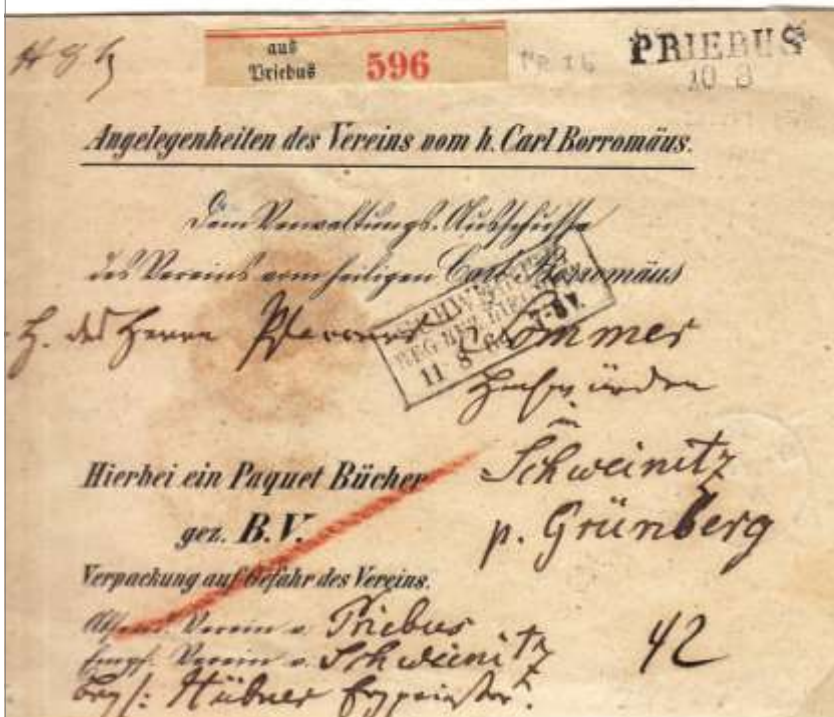 aus
Priebus
596
PRIEBUS
10 8
Angelegenheiten des Vereins vom h. Carl Borromäus.
Dem Verwaltungs-Ausschusse
des Vereins vom heiligen Carl Borromäus
z. H. des Herrn Pfarrers Sommer
Hochwürden
in
Schweinitz
p. Grünberg
SCHWEINITZ
REG. BEZ. LIEGNITZ
11 8 7-8V.
Hierbei ein Paquet Bücher
gez. B. V.
Verpackung auf Gefahr des Vereins.
Verein v. Priebus
Empf. Verein v. Schweinitz
42
Hübner Erzpriester.